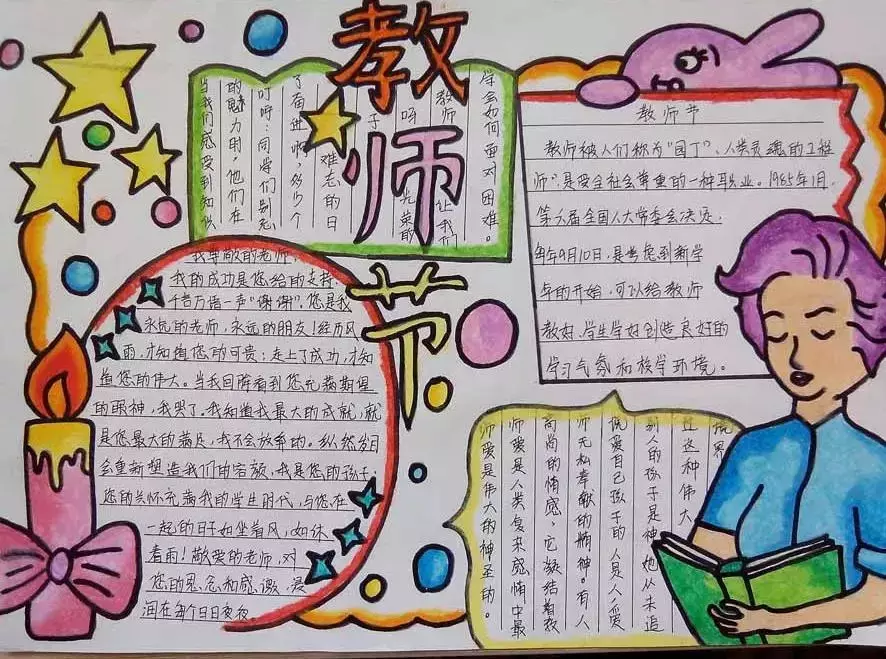 教师节
当我们感受到知识
的魅力时,他们在
叮咛:同学们别忘
了奋进啊,多少个
难忘的日
子
呀
光荣的
教师
让我们
学会如何面对困难。
教师节
教师被人们称为“园丁”、人类灵魂的工程
师”,是受全社会尊重的一种职业。1985年1月,
第六届全国人大常委会决定,
每年9月10日,是考虑到新学
年的开始,可以给教师
教好、学生学好创造良好的
学习气氛和校学环境。
我尊敬的老师
我的成功是您给的支持,
千言万语一声“谢谢”,您是我
永远的老师,永远的朋友!经历风
雨,才知道您的可贵;走上了成功,才知
道您的伟大。当我回眸看到您充满期望
的眼神,我哭了。我知道我最大的成就,就
是您最大的满足,我不会放弃的。纵然岁月
会重新塑造我们的容颜,我是您的孩子;
您的关怀充满我的学生时代,与您在
一起的日子如坐着风,如沐
着雨!敬爱的老师,对
您的思念和感激,浸
润在每个日日夜夜。
师爱是伟大的神圣的。
师爱是人类复杂感情中最
高尚的情感,它凝结着教
师无私奉献的精神。有人
说爱自己孩子的人是人,爱
别人的孩子是神,她从未追
过这种伟大
境界